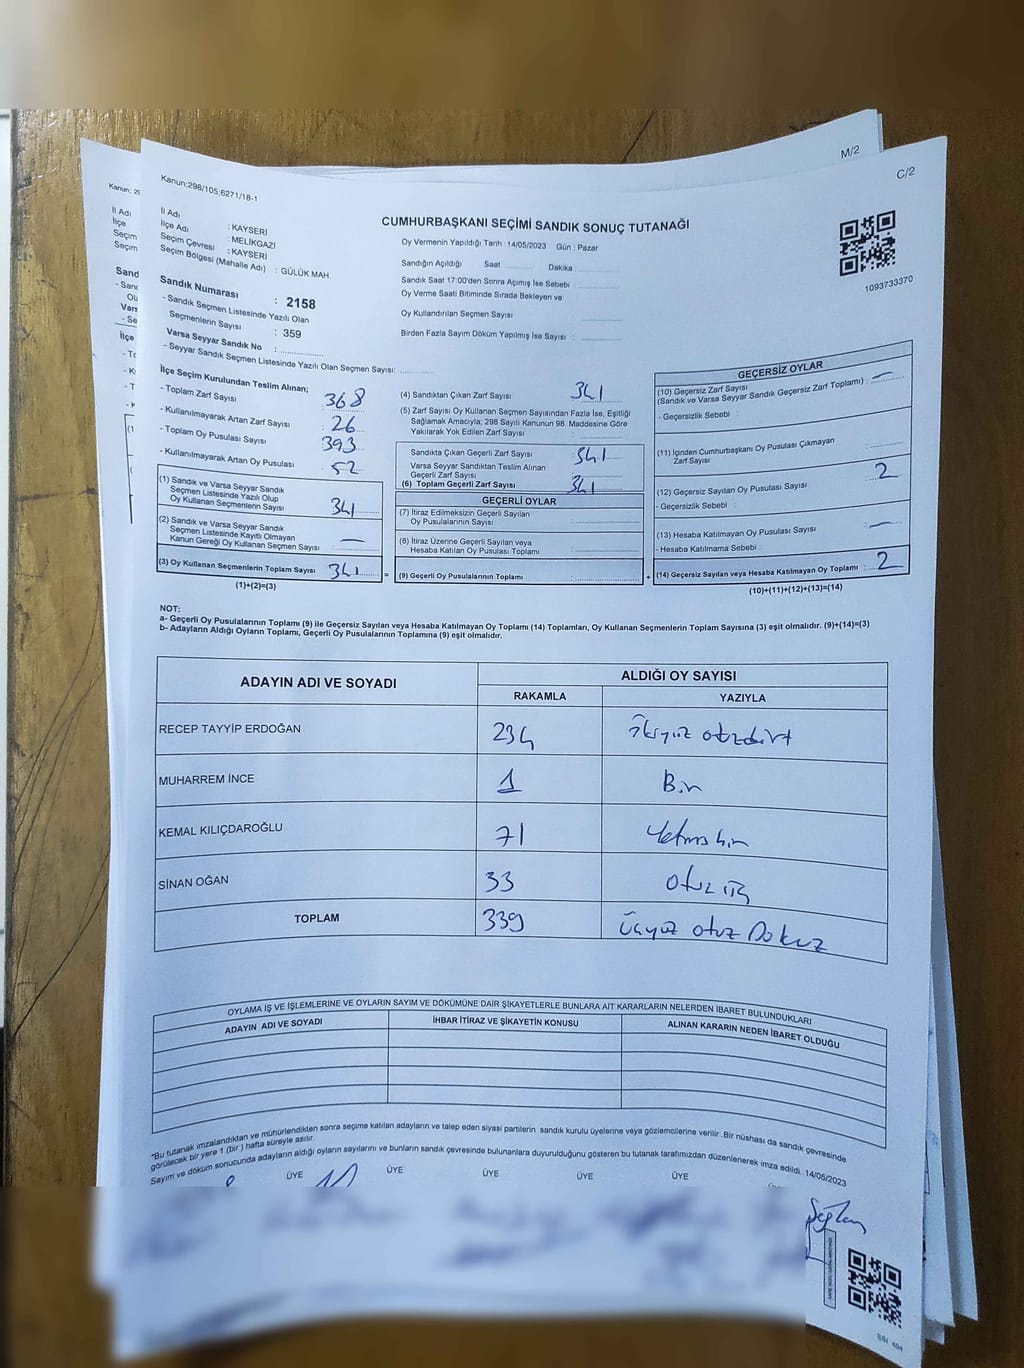 M/2
C/2
Kanun; 29
Kanun;298/105,6271/18-1
İl Adı
İlçe
Seçim
Seçim
İl Adı : KAYSERİ
İlçe Adı : MELİKGAZİ
Seçim Çevresi : KAYSERİ
Seçim Bölgesi (Mahalle Adı) : GÜLÜK MAH.
CUMHURBAŞKANI SEÇİMİ SANDIK SONUÇ TUTANAĞI
Oy Vermenin Yapıldığı Tarih : 14/05/2023 Gün : Pazar
Sandığın Açıldığı Saat Dakika :
Sandık Saat 17:00'den Sonra Açımış İse Sebebi :
Oy Verme Saati Bitiminde Sırada Bekleyen ve
Oy Kullandırılan Seçmen Sayısı
Birden Fazla Sayım Döküm Yapılmış İse Sayısı :
1093733370
Sandık Numarası : 2158
- Sandık Seçmen Listesinde Yazılı Olan
Seçmenlerin Sayısı : 359
Varsa Seyyar Sandık No :
- Seyyar Sandık Seçmen Listesinde Yazılı Olan Seçmen Sayısı:
İlçe Seçim Kurulundan Teslim Alınan;
- Toplam Zarf Sayısı 368
- Kullanılmayarak Artan Zarf Sayısı : 26
- Toplam Oy Pusulası Sayısı : 393
- Kullanılmayarak Artan Oy Pusulası : 52
(1) Sandık ve Varsa Seyyar Sandık
Seçmen Listesinde Yazılı Olup
Oy Kullanan Seçmenlerin Sayısı 341
(2) Sandık ve Varsa Seyyar Sandık
Seçmen Listesinde Kayıtlı Olmayan
Kanun Gereği Oy Kullanan Seçmen Sayısı : —
(3) Oy Kullanan Seçmenlerin Toplam Sayısı 341
(1)+(2)=(3)
(4) Sandıktan Çıkan Zarf Sayısı 341
(5) Zarf Sayısı Oy Kullanan Seçmen Sayısından Fazla İse, Eşitliği
Sağlamak Amacıyla, 298 Sayılı Kanunun 98. Maddesine Göre
Yakılarak Yok Edilen Zarf Sayısı :
Sandıkta Çıkan Geçerli Zarf Sayısı 341
Varsa Seyyar Sandıktan Teslim Alınan
Geçerli Zarf Sayısı
(6) Toplam Geçerli Zarf Sayısı 341
GEÇERLİ OYLAR
(7) İtiraz Edilmeksizin Geçerli Sayılan
Oy Pusulalarının Sayısı :
(8) İtiraz Üzerine Geçerli Sayılan veya
Hesaba Katılan Oy Pusulası Toplamı :
= (9) Geçerli Oy Pusulalarının Toplamı : +
GEÇERSİZ OYLAR
(10) Geçersiz Zarf Sayısı
(Sandık ve Varsa Seyyar Sandık Geçersiz Zarf Toplamı) : —
- Geçersizlik Sebebi :
(11) İçinden Cumhurbaşkanı Oy Pusulası Çıkmayan
Zarf Sayısı :
(12) Geçersiz Sayılan Oy Pusulası Sayısı : 2
- Geçersizlik Sebebi :
(13) Hesaba Katılmayan Oy Pusulası Sayısı : —
- Hesaba Katılmama Sebebi :
(14) Geçersiz Sayılan veya Hesaba Katılmayan Oy Toplamı : 2
(10)+(11)+(12)+(13)=(14)
NOT:
a- Geçerli Oy Pusulalarının Toplamı (9) ile Geçersiz Sayılan veya Hesaba Katılmayan Oy Toplamı (14) Toplamları, Oy Kullanan Seçmenlerin Toplam Sayısına (3) eşit olmalıdır. (9)+(14)=(3)
b- Adayların Aldığı Oyların Toplamı, Geçerli Oy Pusulalarının Toplamına (9) eşit olmalıdır.
ADAYIN ADI VE SOYADI ALDIĞI OY SAYISI
RAKAMLA YAZIYLA
RECEP TAYYİP ERDOĞAN 234 İkiyüz otuzdört
MUHARREM İNCE 1 Bir
KEMAL KILIÇDAROĞLU 71 Yetmişbir
SİNAN OĞAN 33 Otuz üç
TOPLAM 339 Üçyüz otuz Dokuz
OYLAMA İŞ VE İŞLEMLERİNE VE OYLARIN SAYIM VE DÖKÜMÜNE DAİR ŞİKAYETLERLE BUNLARA AİT KARARLARIN NELERDEN İBARET BULUNDUKLARI
ADAYIN ADI VE SOYADI İHBAR İTİRAZ VE ŞİKAYETİN KONUSU ALINAN KARARIN NEDEN İBARET OLDUĞU
*Bu tutanak imzalandıktan ve mühürlendikten sonra seçime katılan adayların ve talep eden siyasi partilerin sandık kurulu üyelerine veya gözlemcilerine verilir .Bir nüshası da sandık çevresinde
görülecek bir yere 1 (bir ) hafta süreyle asılır.
Sayım ve döküm sonucunda adayların aldığı oyların sayılarını ve bunların sandık çevresinde bulunanlara duyurulduğunu gösteren bu tutanak tarafımızdan düzenlenerek imza edildi. 14/05/2023
ÜYE ÜYE ÜYE ÜYE ÜYE